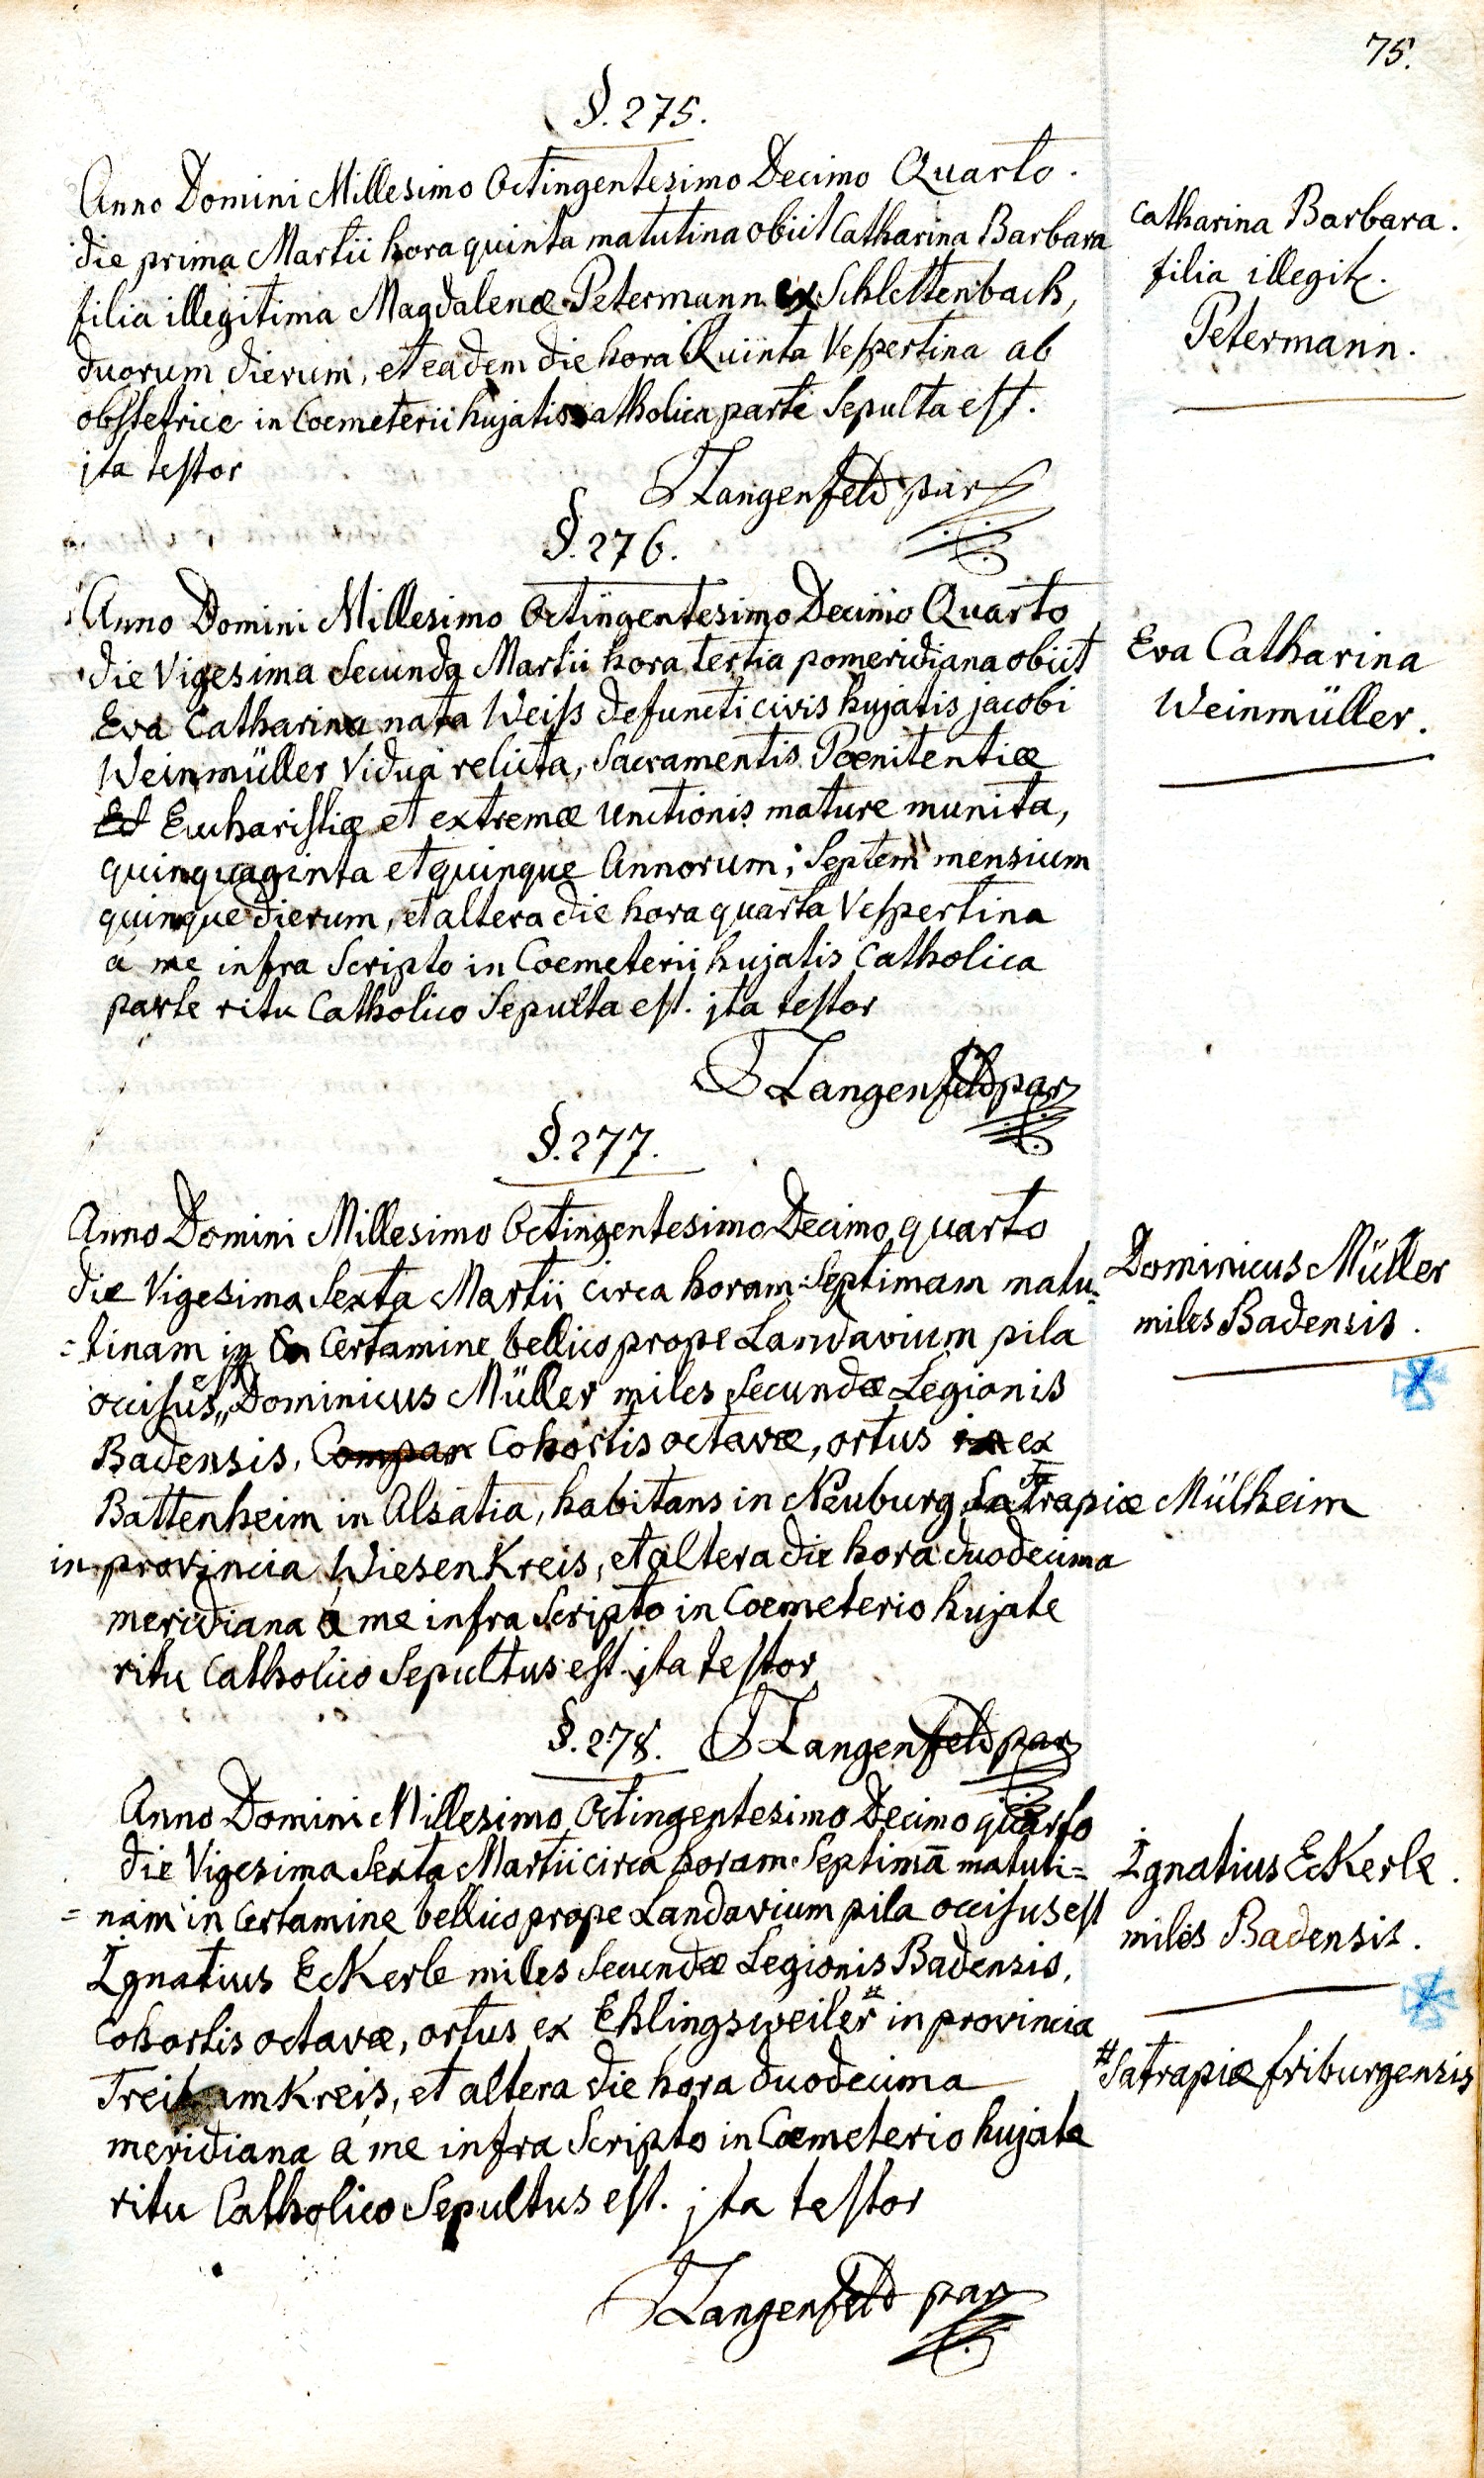 75.
§. 275.
Anno Domini Millesimo Octingentesimo Decimo Quarto.
die prima Martii hora quinta matutina obiit Catharina Barbara
filia illegitima Magdalenæ Petermann ex Schlettenbach,
duorum dierum, et eadem die hora Quinta Vespertina ab
obstetrice in Coemeterii hujatis catholica parte Sepulta est.
jta testor
Langenfeld par
Catharina Barbara.
filia illegit.
Petermann.
§. 276.
Anno Domini Millesimo Octingentesimo Decimo Quarto
die Vigesima Secunda Martii hora tertia pomeridiana obiit
Eva Catharina nata Weiss defuncti civis hujatis jacobi
Weinmüller Vidua relicta, Sacramentis Poenitentiæ
Et Eucharistiæ et extremæ unctionis mature munita,
quinquaginta et quinque Annorum, Septem mensium
quinque dierum, et altera die hora quarta Vespertina
á me infra Scripto in Coemeterii hujatis Catholica
parte ritu Catholico Sepulta est. jta testor
Langenfeld par
Eva Catharina
Weinmüller.
§. 277.
Anno Domini Millesimo Octingentesimo Decimo quarto
die Vigesima Sexta Martii circa horam Septimam matu=
=tinam in Certamine bellico prope Landavium pila
occisus est Dominicus Müller miles Secundæ Legionis
Badensis, Compar Cohortis octavæ, ortus in ex
Battenheim in Alsatia, habitans in Neuburg Satrapiæ Mülheim
in provincia Wiesenkreis, et altera die hora duodecima
meridiana á me infra Scripto in Coemeterio hujate
ritu Catholico Sepultus est. jta testor
Langenfeld par
Dominicus Müller
miles Badensis.
§. 278.
Anno Domini Millesimo Octingentesimo Decimo quarto
die Vigesima Sexta Martii circa horam Septimā matuti=
=nam in Certamine bellico prope Landavium pila occisus est
Ignatius EcKerle miles Secundæ Legionis Badensis,
Cohortis octavæ, ortus ex Ehlingsweiler # in provincia
Treisamkreis, et altera die hora duodecima
meridiana á me infra Scripto in Coemeterio hujate
ritu Catholico Sepultus est. jta testor
Langenfeld par
Ignatius EcKerle.
miles Badensis.
# Satrapiæ friburgensis